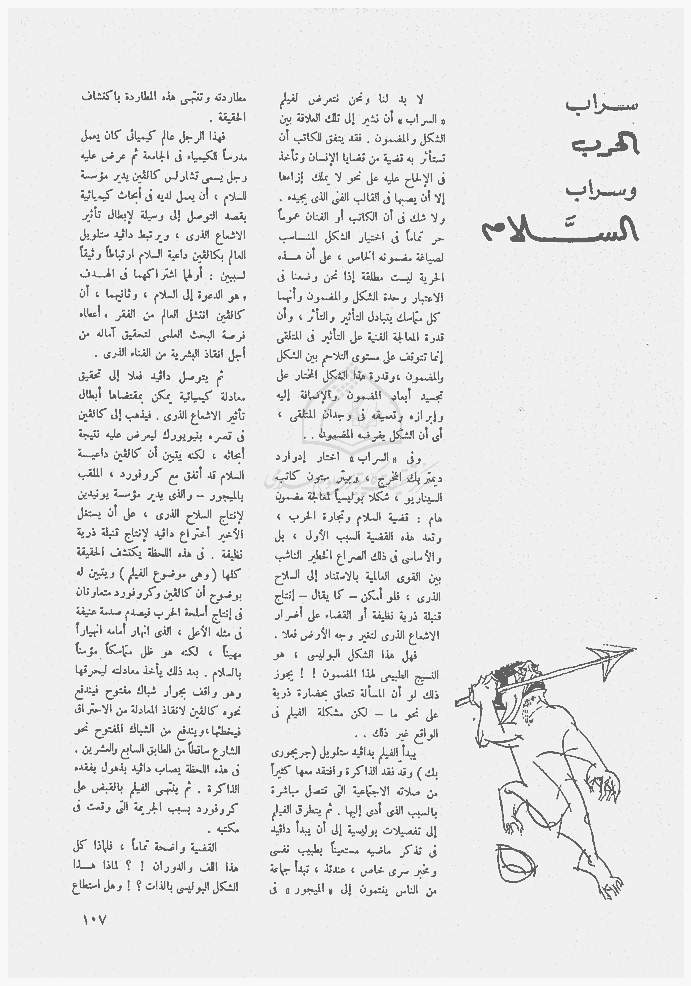 سراب
الحرب
وسراب
السلام
لا بد لنا ونحن نتعرض لفيلم
« السراب » أن نشير إلى تلك العلاقة بين
الشكل والمضمون . فقد يتفق للكاتب أن
تستأثر به قضية من قضايا الإنسان وتأخذ
فى الإلحاح عليه على نحو لا يملك إزاءها
إلا أن يصبها فى القالب الفنى الذى يجيده .
ولا شك فى أن الكاتب أو الفنان عموماً
حر تماماً فى اختيار الشكل المناسب
لصياغة مضمونه الخاص ، على أن هذه
الحرية ليست مطلقة إذا نحن وضعنا فى
الاعتبار وحدة الشكل والمضمون وأنهما
كل متماسك يتبادل التأثير والتأثر ، وأن
قدرة المعالجة الفنية على التأثير فى المتلقى
إنما تتوقف على مستوى التلاحم بين الشكل
والمضمون ، وقدرة هذا الشكل المختار على
تجسيد أبعاد المضمون والإضافة إليه
وإبرازه وتعميقه فى وجدان المتلقى ،
أى أن الشكل يفرضه المضمون . .
وفى « السراب » اختار إدوارد
ديمتريك المخرج ، وبيتر ستون كاتب
السيناريو ، شكلا بوليسياً لمعالجة مضمون
هام : قضية السلام وتجارة الحرب ،
وتعد هذه القضية السبب الأول ، بل
والأساسى فى ذلك الصراع الخطير الناشب
بين القوى العالمية بالاستناد إلى السلاح
الذرى ، فلو أمكن – كما يقال – إنتاج
قنبلة ذرية نظيفة أو القضاء على أضرار
الاشعاع الذرى لتغير وجه الأرض فعلا .
فهل هذا الشكل البوليسى ، هو
النسيج الطبيعى لهذا المضمون ! ! يجوز
ذلك لو أن المسألة تتعلق بحضارة ذرية
على نحو ما – لكن مشكلة الفيلم فى
الواقع غير ذلك . .
يبدأ الفيلم بدافيد ستلويل ( جريجورى
بك ) وقد فقد الذاكرة وافتقد معها كثيراً
من صلاته الاجتماعية التى تتصل مباشرة
بالسبب الذى أدى إليها . ثم يتطرق الفيلم
إلى تفصيلات بوليسية إلى أن يبدأ دافيد
فى تذكر ماضيه مستعيناً بطبيب نفسى
ومخبر سرى خاص ، عندئذ ، تبدأ جماعة
من الناس ينتمون إلى « الميجور » فى
مطاردته وتنتهى هذه المطاردة باكتشاف
الحقيقة .
فهذا الرجل عالم كيميائى كان يعمل
مدرساً للكيمياء فى الجامعة ثم عرض عليه
رجل يسمى تشارلس كالفين يدير مؤسسة
للسلام ، أن يعمل لديه فى أبحاث كيميائية
بقصد التوصل إلى وسيلة لإبطال تأثير
الاشعاع الذرى ، ويرتبط دافيد ستلويل
العالم بكالفين داعية السلام ارتباطاً وثيقاً
لسببين : أولهما اشتراكهما فى الهدف
، هو الدعوة إلى السلام ، وثانيهما ، أن
كالفين انتشل العالم من الفقر ، أعطاه
فرصة البحث العلمى لتحقيق آماله من
أجل انقاذ البشرية من الفناء الذرى .
ثم يتوصل دافيد فعلا إلى تحقيق
معادلة كيميائية يمكن بمقتضاها أبطال
تأثير الاشعاع الذرى . فيذهب إلى كالفين
فى قصره بنيويورك ليعرض عليه نتيجة
أبحاثه ، لكنه يتبين أن كالفين داعية
السلام قد أتفق مع كروفورد ، الملقب
بالميجور – والذى يدير مؤسسة يونيدين
لإنتاج السلاح الذرى ، على أن يستغل
الأخير أختراع دافيد لإنتاج قنبلة ذرية
نظيفة . فى هذه اللحظة يكتشف الحقيقة
كلها ( وهى موضوع الفيلم ) ويتبين له
بوضوح أن كالفين وكروفورد متعاونان
فى إنتاج أسلحة الحرب فيصدم صدمة عنيفة
فى مثله الأعلى ، الذى انهار أمامه انهياراً
مهيناً ، لكنه هو ظل متماسكاً مؤمناً
بالسلام . بعد ذلك يأخذ معادلته ليحرقها
وهو واقف بجوار شباك مفتوح فيندفع
نحوه كالفين لانقاذ المعادلة من الاحتراق
فيخطئها، ويندفع من الشباك المفتوح نحو
الشارع ساقطاً من الطابق السابع والعشرين .
فى هذه اللحظة يصاب دافيد بذهول يفقده
الذاكرة . ثم ينتهى الفيلم بالقبض على
كروفورد بسبب الجريمة التى وقعت فى
مكتبه .
القضية واضحة تماماً ، فلماذا كل
هذا اللف والدوران ! ؟ لماذا هذا
الشكل البوليسى بالذات ؟ ! وهل استطاع
١٠٧